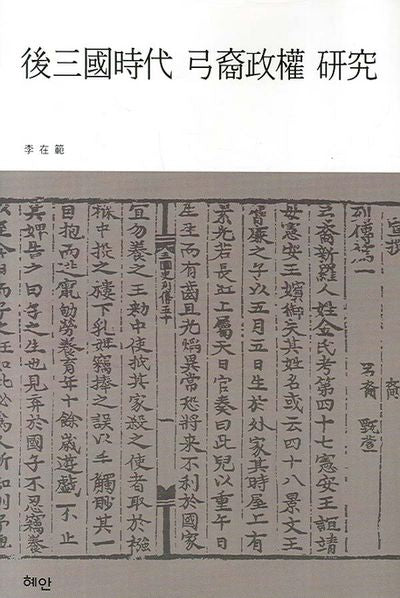 後三國時代 弓裔政權 硏究
李在範
弓裔 甄萱
弓裔新羅人姓金氏考第四十七憲安王誼靖
母憲安王嬪御失其姓名或云四十八景文王
膺廉之子以五月五日生於外家其時屋上有
素光若長虹上屬天日官奏曰此兒以重午日
生生而有齒且光焰異常恐將來不利於國家
三國史列傳五十
宜勿養之王勅中使抵其家殺之使者取於襁
褓中投之樓下乳婢竊捧之誤以手觸眇其一
目抱而逃竄劬勞養育年十餘歲遊戱不止
其婢告之曰子之生也見弃於國予不忍竊養
以至今日而子之狂如此必爲人所知則予
혜안